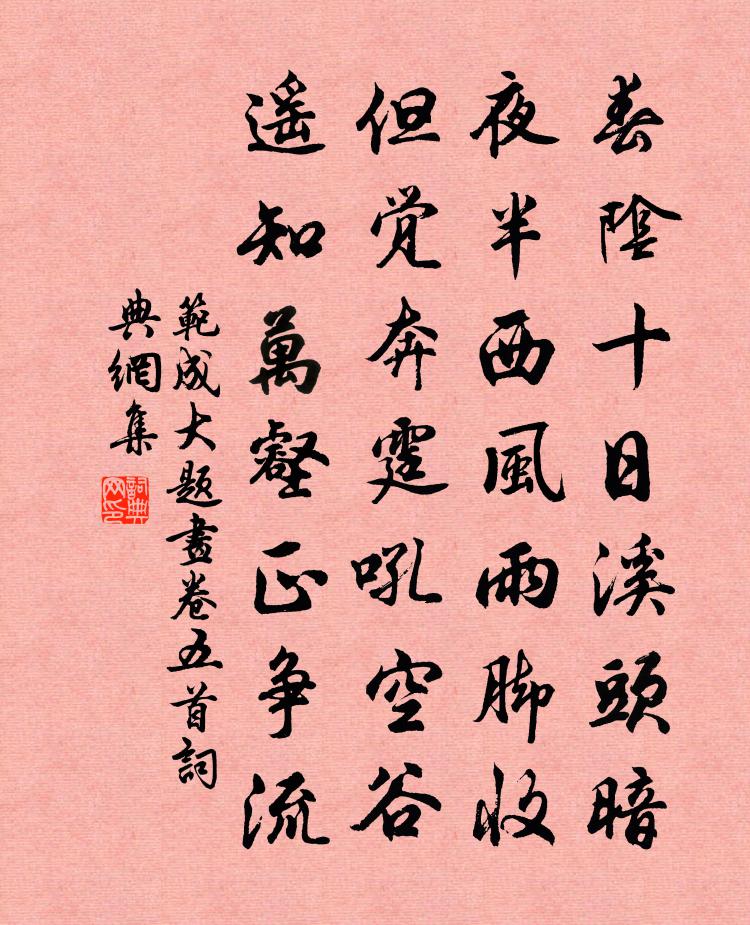 春陰十日溪頭暗
夜半西風雨脚收
但覺奔霆吼空谷
遥知萬壑正争流
範成大题畫卷五首詞
典網集
詞典網印